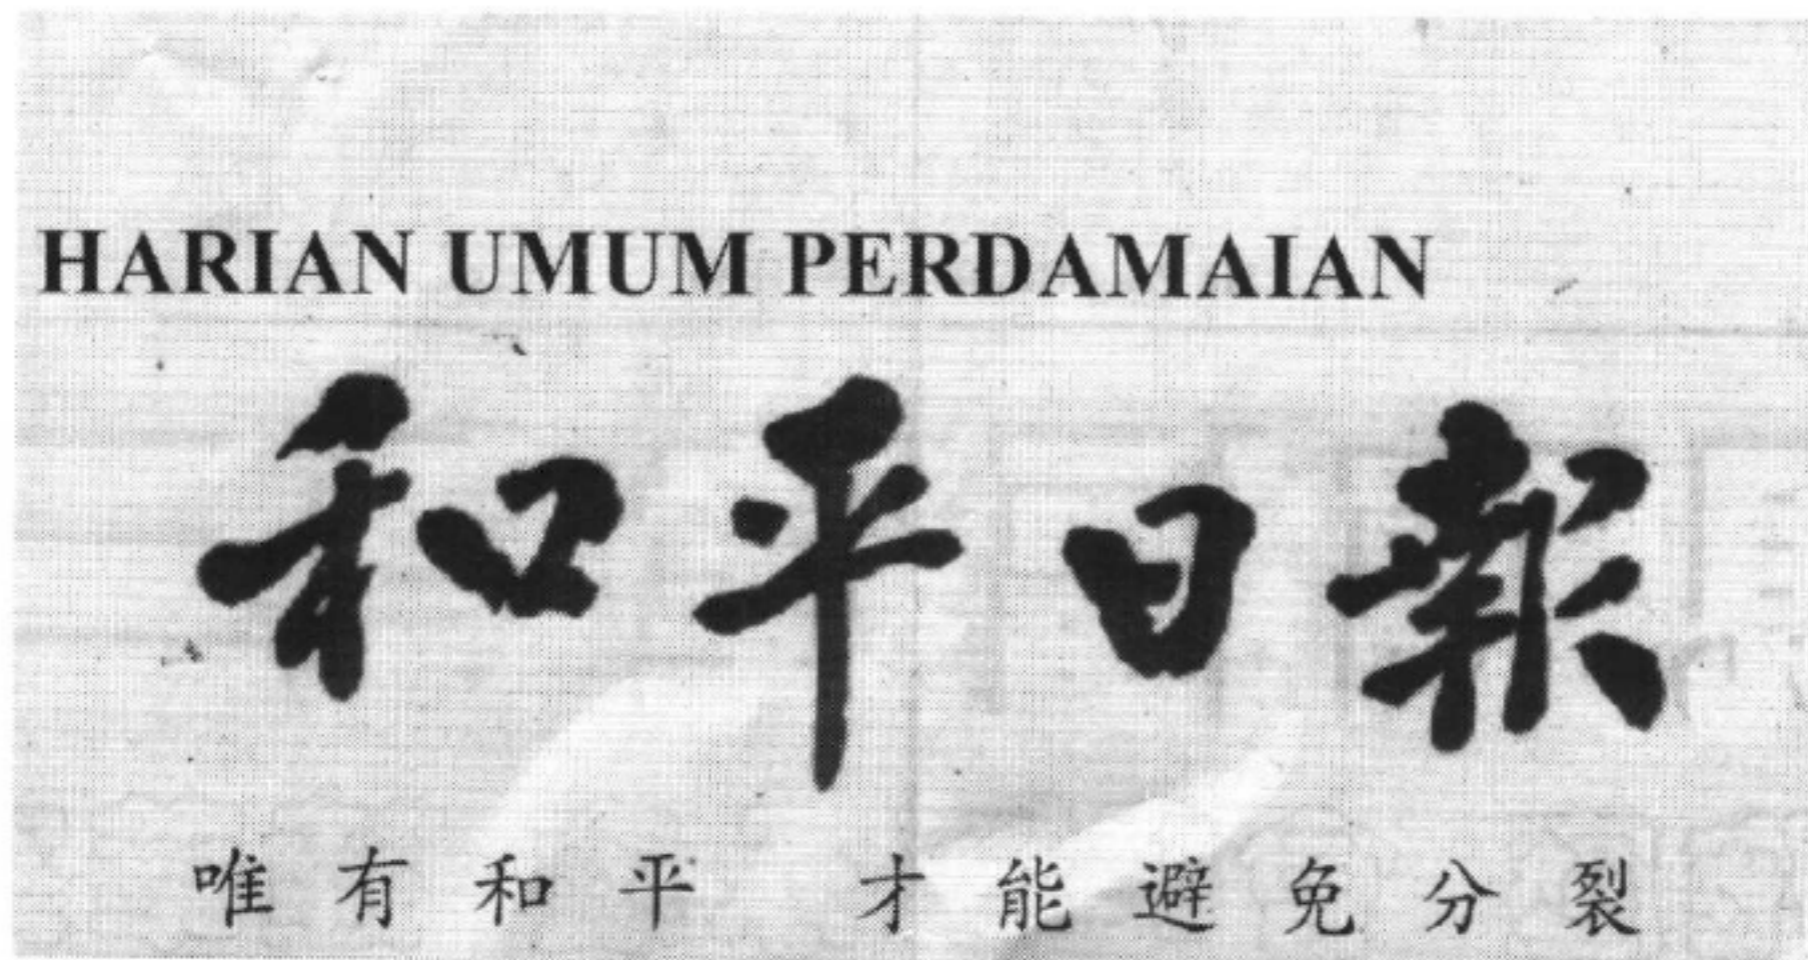 HARIAN UMUM PERDAMAIAN
和平日報
唯有和平 才能避免分裂